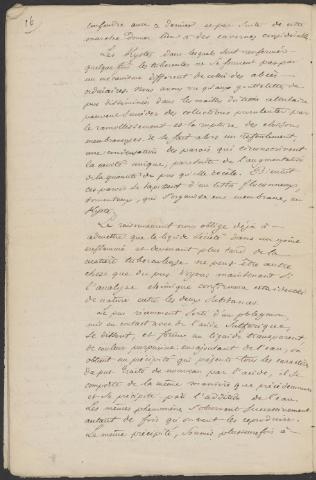 16
confondre avec ce dernier et par suite de cette
manière donner lieu à des cavernes considérables
Les Kystes dans lesquels sont renfermés
quelquefois les tubercules ne se forment pas par
un mécanisme différent de celui des abcès
ordinaires. Nous avons vu qu'aux gouttelettes de
pus disséminées dans les mailles du tissu cellulaire
peuvent succéder des collections purulentes par
le ramollissement et la rupture des cloisons
membraneuses. Il se fait alors un refoulement,
une condensation des parois qui circonscrivent
la cavité unique, par suite de l'augmentation
de la quantité de pus qu'elle recèle. Et bientôt
ces parois se tapissent d'un enduit floconneux,
tomenteux, qui s'organise en membrane, en
Kyste.
Le raisonnement nous oblige déjà à
admettre que le liquide sécrété dans un poumon
enflammé et devenant plus tard de la
matière tuberculeuse ne peut être autre
chose que du pus. Voyons maintenant si
l'analyse chimique confirmera cette identité
de nature entre les deux substances.
Le pus récemment sorti d'un phlegmon,
mis en contact avec de l'acide sulfurique,
se dissout, et forme un liquide transparent,
de couleur purpurine. en ajoutant de l'eau, on
obtient un précipité qui présente tous les caractères
du pus. Traité de nouveau par l'acide, il se
comporte de la même manière que précédemment
et se précipite par l'addition de l'eau.
Les mêmes phénomènes s'observent successivement
autant de fois qu'on veut les reproduire.
Le même précipité, soumis plusieurs fois à